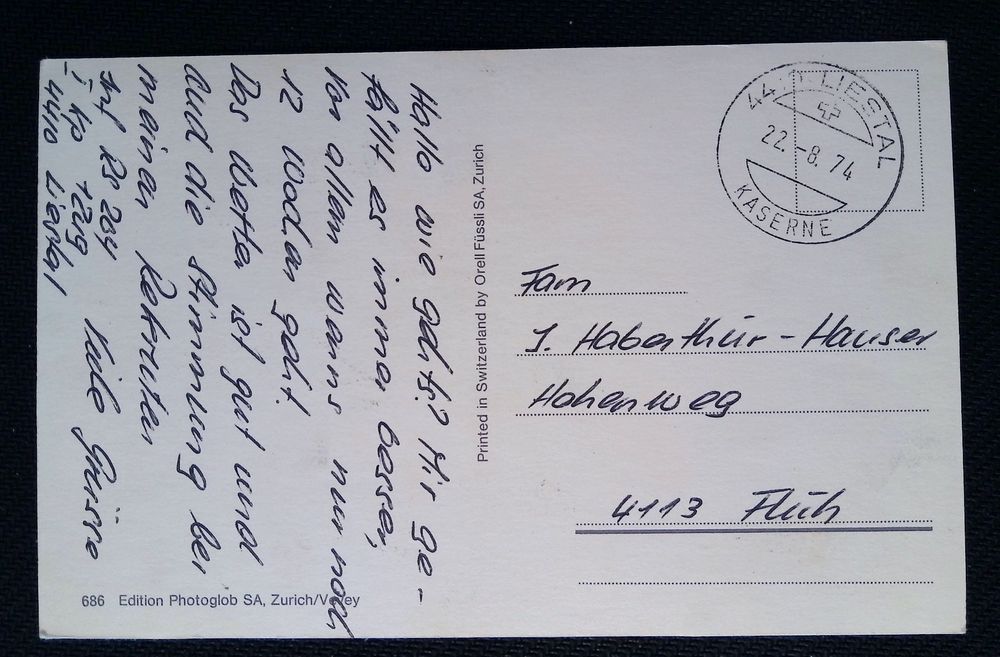 Hallo wie gehts? Mir ge-
fällt es immer besser,
vor allem wenns nur noch
12 Wochen geht.
Das Wetter ist gut und
auch die Stimmung bei
meinen Rekruten
Viele Grüsse
Inf RS 204
I Kp 1 Zug
4410 Liestal
Printed in Switzerland by Orell Füssli SA, Zurich
4410 LIESTAL
22.-8. 74
KASERNE
Fam
J. Haberthür-Hauser
Hohenweg
4113 Flüh
686 Edition Photoglob SA, Zurich/Vevey